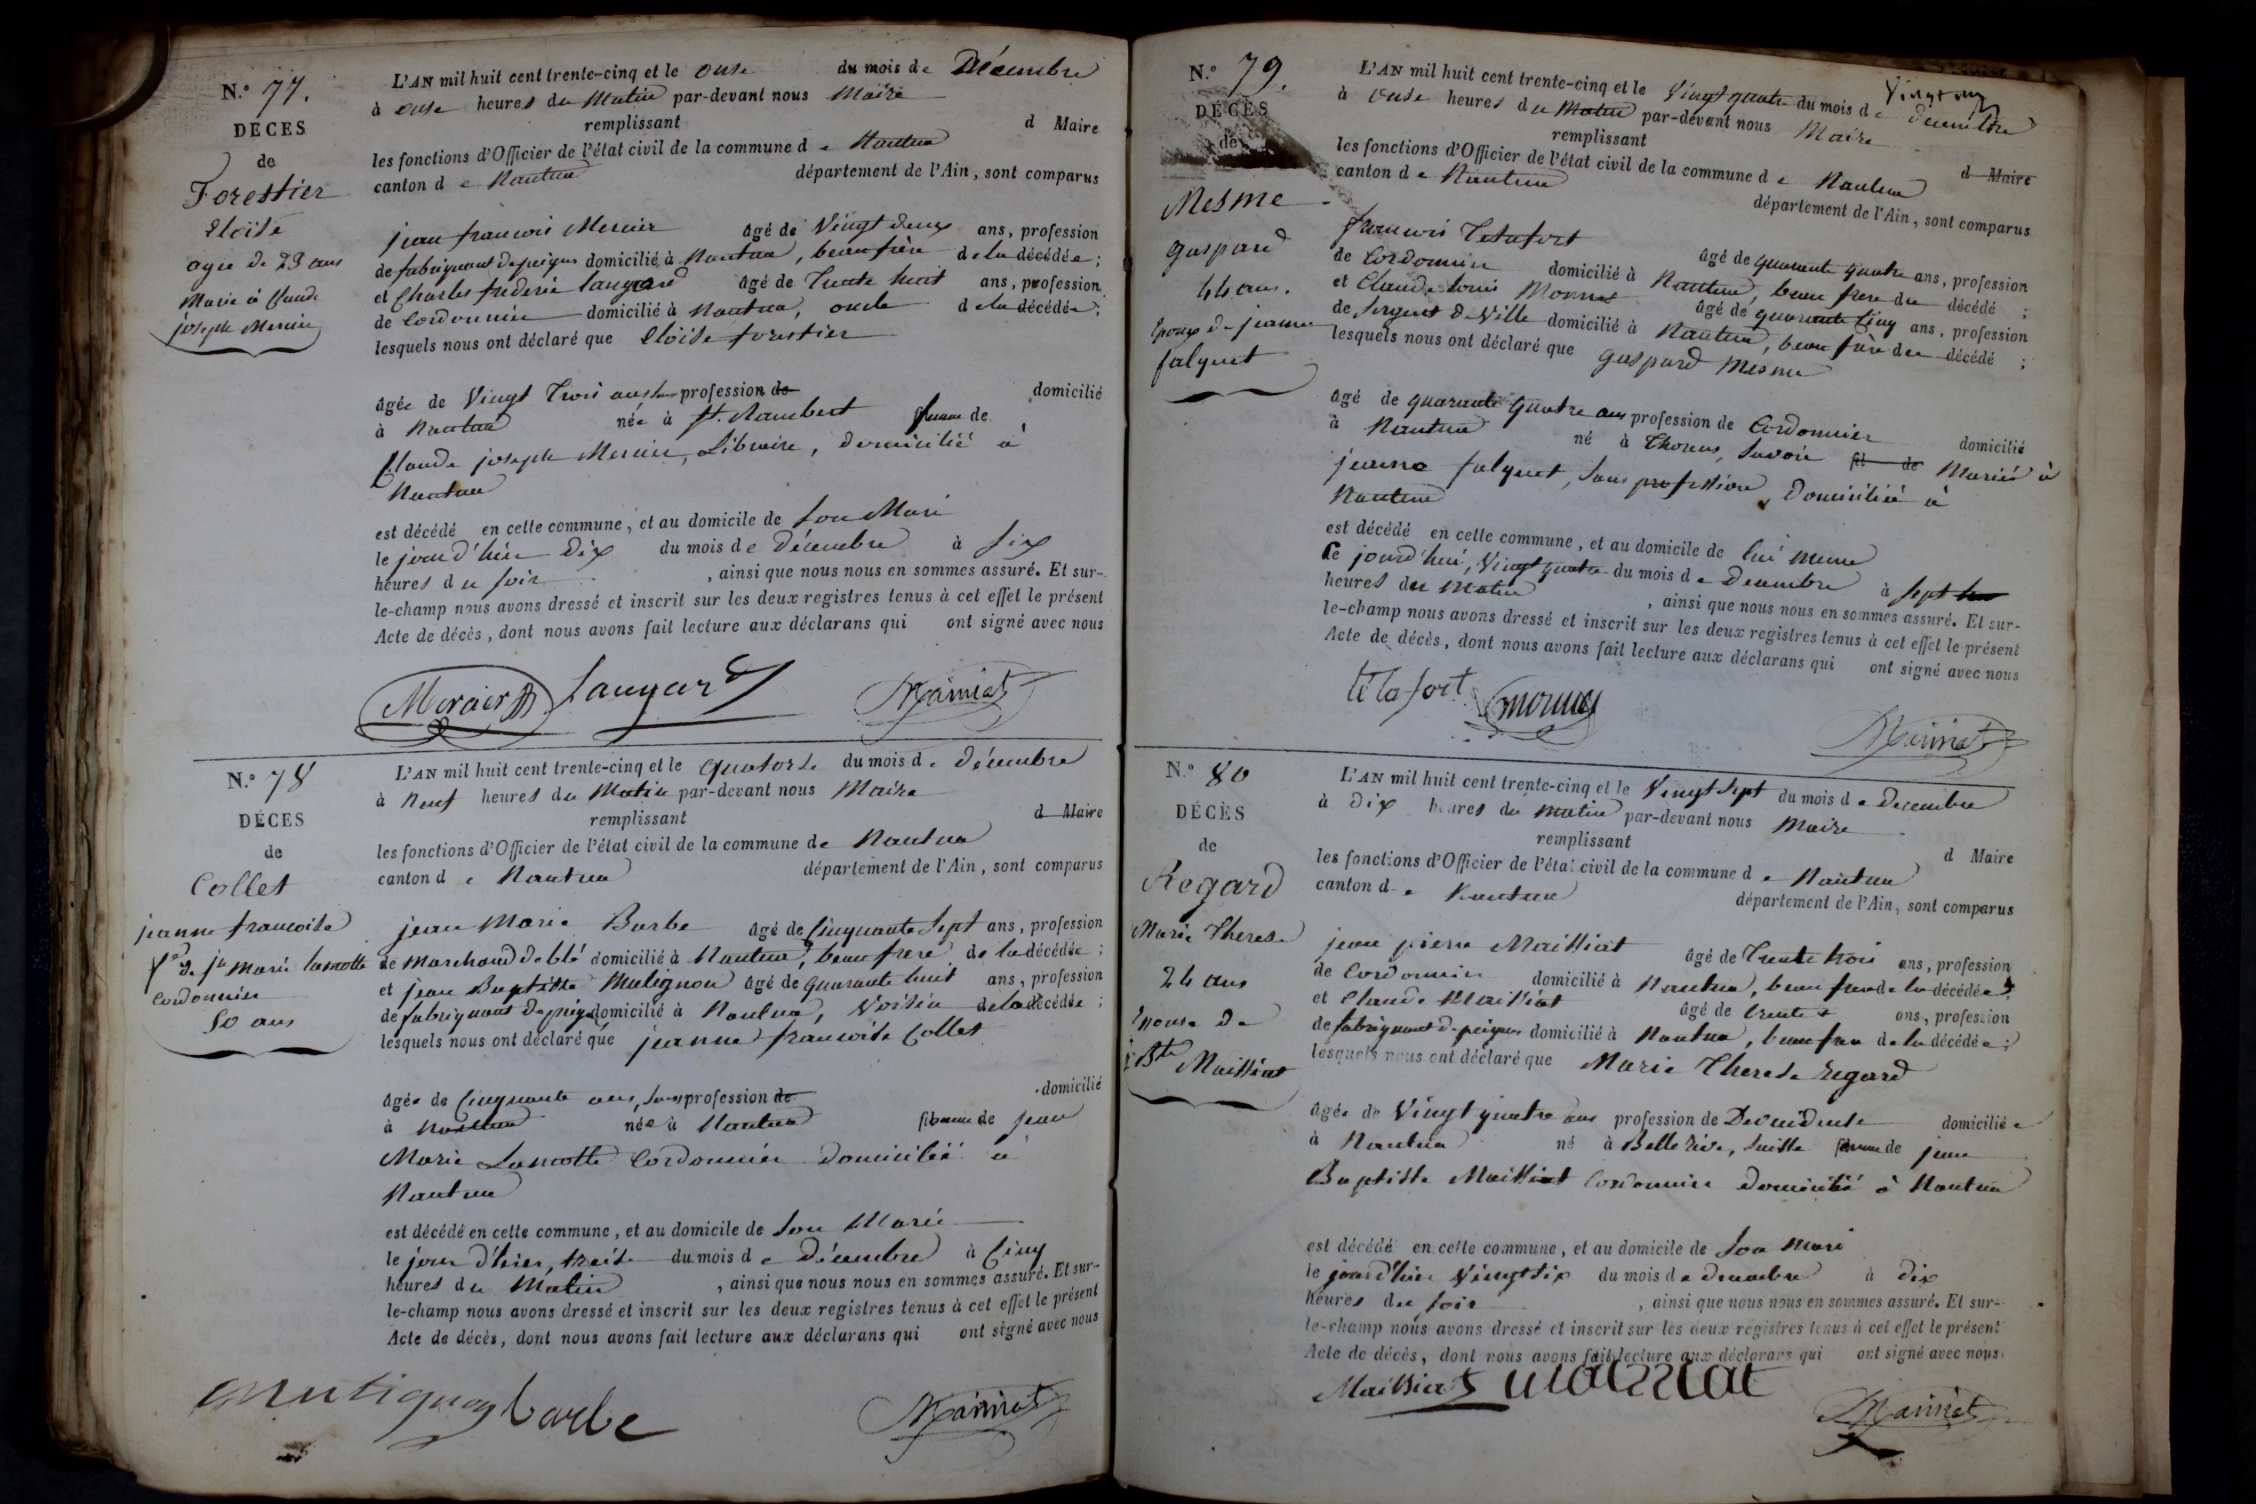 N.° 77.
DÉCÈS
de
Forestier
Eloïse
agée de 23 ans
Mariée à Claude
joseph Mercier
L'AN mil huit cent trente-cinq et le onse du mois de Décembre
à onse heures du Matin par-devant nous Maire
remplissant d Maire
les fonctions d'Officier de l'état civil de la commune de Nantua
canton de Nantua département de l'Ain, sont comparus
jean francois Mercier âgé de Vingt deux ans, profession
de fabriquant de peignes domicilié à Nantua, beau frère de la décédée;
et Charles frederic Laugard âgé de Trente huit ans, profession
de Cordonnier domicilié à Nantua, oncle de la décédée;
lesquels nous ont déclaré que Eloïse forestier
âgée de Vingt Trois ans sans profession de domicilié
à Nantua née à St. Rambert femme de
Claude joseph Mercier, Libraire, domicilié à
Nantua
est décédé en cette commune, et au domicile de Son Mari
le jour d'hier Dix du mois de Décembre à Six
heures du soir, ainsi que nous nous en sommes assuré. Et sur-
le-champ nous avons dressé et inscrit sur les deux registres tenus à cet effet le présent
Acte de décès, dont nous avons fait lecture aux déclarans qui ont signé avec nous
Mercier Laugard
N.° 78
DÉCES
de
Collet
jeanne francoise
de jn Marie Lamotte
Cordonnier
50 ans
L'AN mil huit cent trente-cinq et le quatorse du mois de Décembre
à Neuf heures du Matin par-devant nous Maire
remplissant d Maire
les fonctions d'Officier de l'état civil de la commune de Nantua
canton de Nantua département de l'Ain, sont comparus
jean Marie Barbe âgé de Cinquante Sept ans, profession
de Marchand de blé domicilié à Nantua, beau frere de la décédée;
et jean Baptiste Mulignon âgé de quarante huit ans, profession
de fabriquant de peignes domicilié à Nantua, Voisin de la décédée;
lesquels nous ont déclaré que jeanne francoise Collet
âgée de Cinquante ans, sans profession de domicilié
à Nantua née à Nantua femme de jean
Marie Lamotte Cordonnier domicilié à
Nantua
est décédé en cette commune, et au domicile de Son Mari
le jour d'hier, treise du mois de Décembre à Cinq
heures du Matin, ainsi que nous nous en sommes assuré. Et sur-
le-champ nous avons dressé et inscrit sur les deux registres tenus à cet effet le présent
Acte de décès, dont nous avons fait lecture aux déclarans qui ont signé avec nous
barbe
N.° 79.
DÉCÈS
de
Mesme
gaspard
44 ans.
Epoux de jeanne
falquet
L'AN mil huit cent trente-cinq et le Vingt quatre du mois de decembre
à onse heures du Matin par-devant nous Maire
remplissant d Maire
les fonctions d'Officier de l'état civil de la commune de Nantua
canton de Nantua département de l'Ain, sont comparus
francois Telafort âgé de quarante quatre ans, profession
de Cordonnier domicilié à Nantua, beau frere du décédé;
et Claude Louis Monnet âgé de quarante Cinq ans, profession
de Sergent de Ville domicilié à Nantua, beau frère du décédé;
lesquels nous ont déclaré que gaspard Mesme
âgé de quarante quatre ans profession de Cordonnier domicilié
à Nantua né à Thorens, Savoie fil de Marié à
jeanne falquet, Sans profession, Domiciliée à
Nantua
est décédé en cette commune, et au domicile de lui même
Ce jourd'hui, Vingt quatre du mois de Decembre à Sept
heures du Matin, ainsi que nous nous en sommes assuré. Et sur-
le-champ nous avons dressé et inscrit sur les deux registres tenus à cet effet le présent
Acte de décès, dont nous avons fait lecture aux déclarans qui ont signé avec nous
télafort
N.° 80
DÉCÈS
de
Regard
Marie Therese
24 ans
Epouse de
j Bte Maissiat
L'AN mil huit cent trente-cinq et le Vingt Sept du mois de Decembre
à Dix heures du matin par-devant nous Maire
remplissant d Maire
les fonctions d'Officier de l'état civil de la commune de Nantua
canton de Nantua département de l'Ain, sont comparus
jean pierre Maissiat âgé de Trente trois ans, profession
de Cordonnier domicilié à Nantua, beau frere de la décédée;
et Claude Maissiat âgé de trente ans, profession
de fabriquant de peignes domicilié à Nantua, beau frere de la décédée;
lesquels nous ont déclaré que Marie Therese Regard
âgée de Vingt quatre ans profession de Devideuse domiciliée
à Nantua né à Belle rive, Suisse femme de jean
Baptiste Maissiat Cordonnier domicilié à Nantua
est décédé en cette commune, et au domicile de Son Mari
le jour d'hier Vingt Six du mois de Decembre à Dix
heures du soir, ainsi que nous nous en sommes assuré. Et sur-
le-champ nous avons dressé et inscrit sur les deux régistres tenus à cet effet le présent
Acte de décès, dont nous avons fait lecture aux déclarans qui ont signé avec nous.
Maissiat maissiat